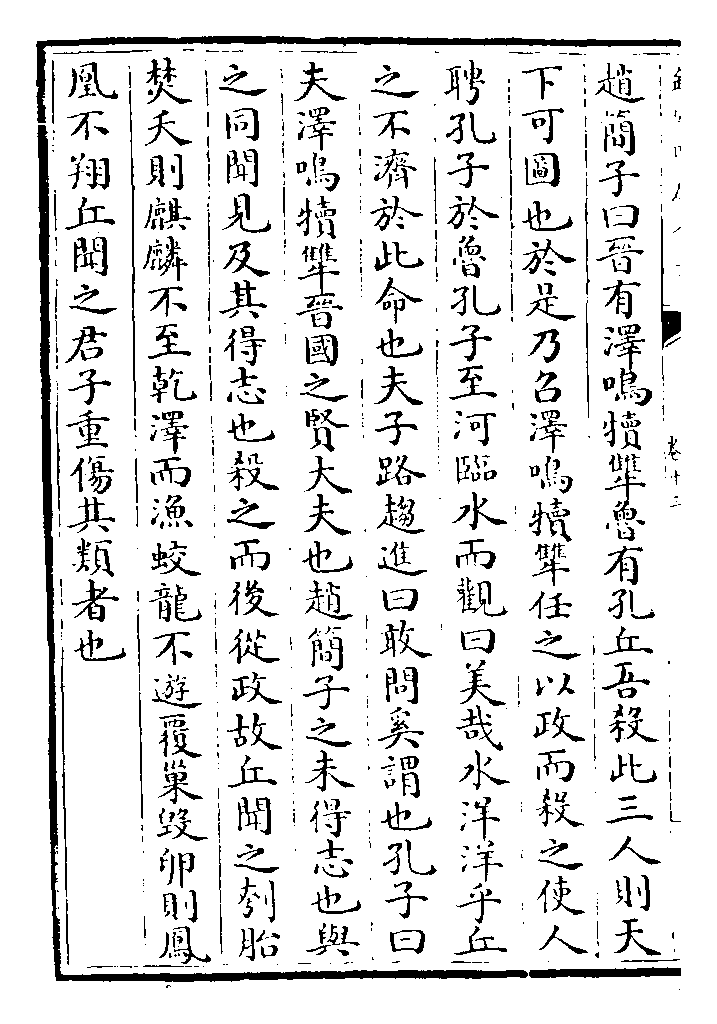 趙簡子曰晉有澤鳴犢犨魯有孔丘吾殺此三人則天
下可圖也於是乃召澤鳴犢犨任之以政而殺之使人
聘孔子於魯孔子至河臨水而觀曰美哉水洋洋乎丘
之不濟於此命也夫子路趨進曰敢問奚謂也孔子曰
夫澤鳴犢犨晉國之賢大夫也趙簡子之未得志也與
之同聞見及其得志也殺之而後從政故丘聞之刳胎
焚夭則麒麟不至乾澤而漁蛟龍不遊覆巢毀卵則鳳
凰不翔丘聞之君子重傷其類者也
卷十三